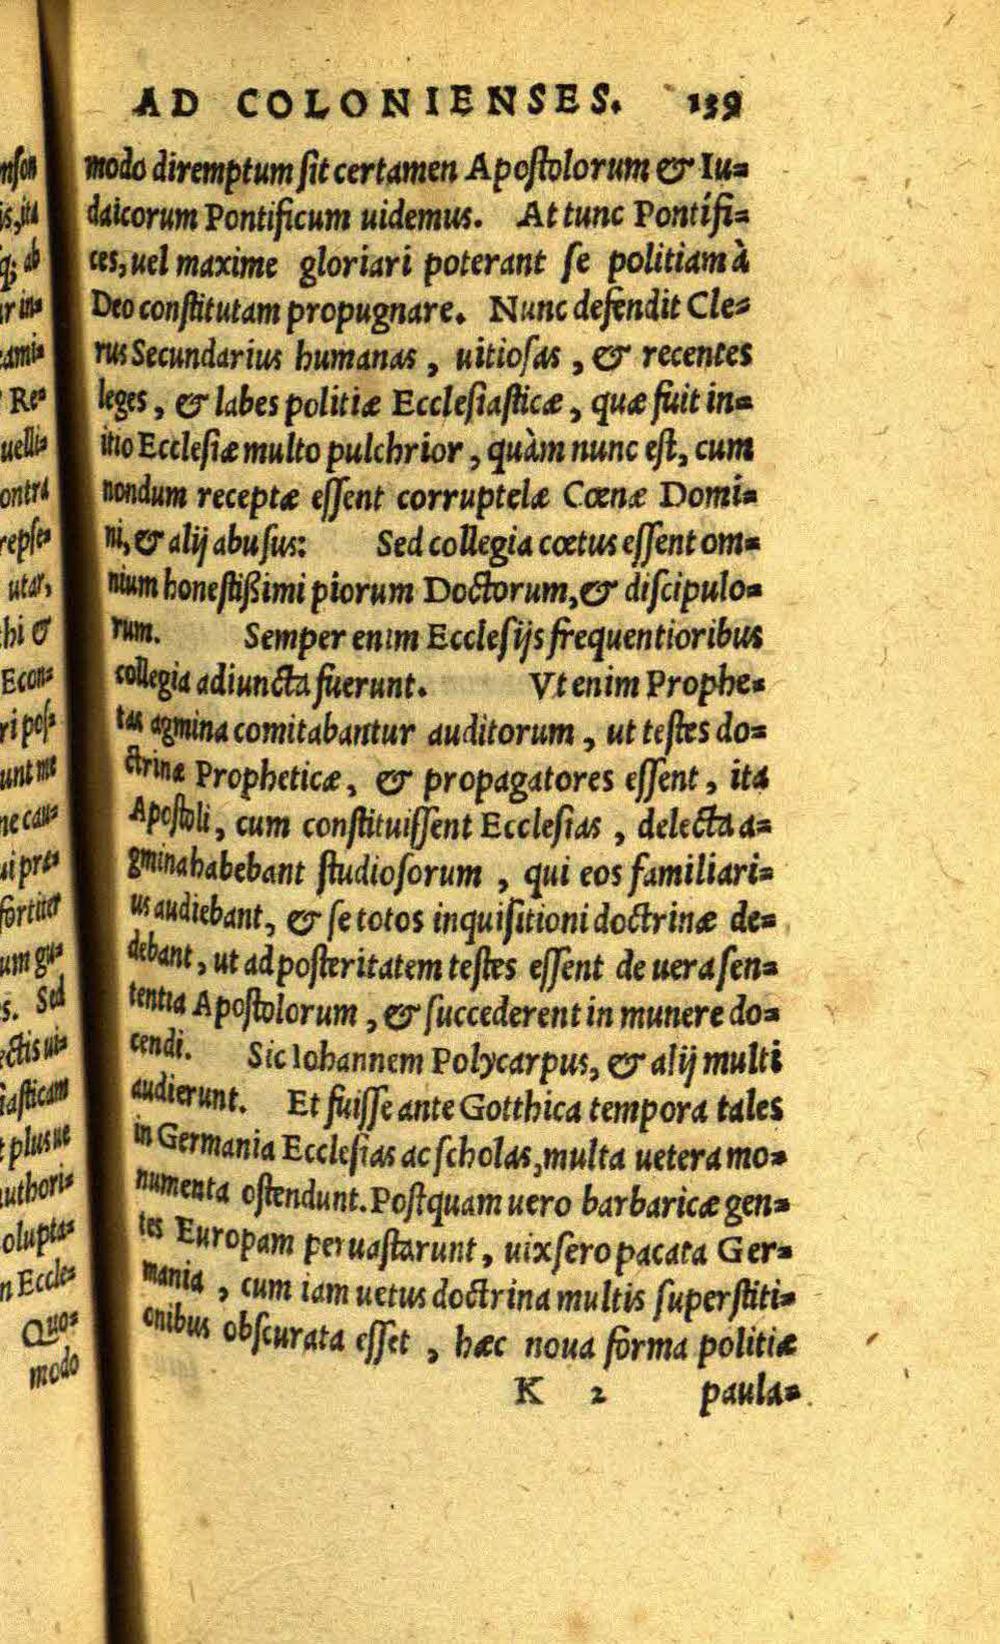 AD COLONIENSES. 139
modo diremptum sit certamen Apostolorum & Iu=
daicorum Pontificum uidemus. At tunc Pontifi=
ces, uel maxime gloriari poterant se politiam à
Deo constitutam propugnare. Nunc defendit Cle=
rus Secundarius humanas, uitiosas, & recentes
leges, & labes politiæ Ecclesiasticæ, quæ fuit in=
itio Ecclesiæ multo pulchrior, quàm nunc est, cum
nondum receptæ essent corruptelæ Cœnæ Domi=
ni, & alij abusus: Sed collegia cœtus essent om=
nium honestißimi piorum Doctorum, & discipulo=
rum. Semper enim Ecclesijs frequentioribus
collegia adiuncta fuerunt. Vt enim Prophe=
tas agmina comitabantur auditorum, ut testes do=
ctrinæ Propheticæ, & propagatores essent, ita
Apostoli, cum constituissent Ecclesias, delecta a=
gmina habebant studiosorum, qui eos familiari=
us audiebant, & se totos inquisitioni doctrinæ de=
debant, ut ad posteritatem testes essent de uera sen=
tentia Apostolorum, & succederent in munere do=
cendi. Sic Iohannem Polycarpus, & alij multi
audierunt. Et fuisse ante Gotthica tempora tales
in Germania Ecclesias ac scholas, multa uetera mo=
numenta ostendunt. Postquam uero barbaricæ gen=
tes Europam peruastarunt, uix sero pacata Ger=
mania, cum iam uetus doctrina multis superstiti=
onibus obscurata esset, hæc noua forma politiæ
K 2 paula=